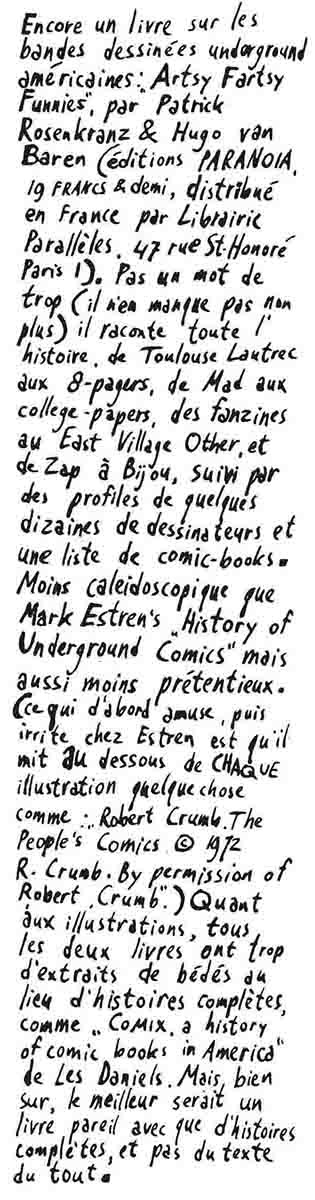 Encore un livre sur les
bandes dessinées underground
américaines: „Artsy Fartsy
Funnies", par Patrick
Rosenkranz & Hugo van
Baren (éditions PARANOIA,
19 FRANCS & demi, distribué
en France par Librairie
Parallèles, 47 rue St-Honoré
Paris 1). Pas un mot de
trop (il n'en manque pas non
plus) il raconte toute l'
histoire, de Toulouse Lautrec
aux 8-pagers, de Mad aux
college-papers, des fanzines
au East Village Other, et
de Zap à Bijou, suivi par
des profiles de quelques
dizaines de dessinateurs et
une liste de comic-books.
Moins caleidoscopique que
Mark Estren's „History of
Underground Comics" mais
aussi moins prétentieux.
(Ce qui d'abord amuse, puis
irrite chez Estren est qu'il
mit au dessous de CHAQUE
illustration quelque chose
comme: „Robert Crumb. The
People's Comics © 1972
R. Crumb. By permission of
Robert Crumb".) Quant
aux illustrations, tous
les deux livres ont trop
d'extraits de bédés au
lieu d'histoires complètes,
comme „COMIX, a history
of comic books in America"
de Les Daniels. Mais, bien
sur, le meilleur serait un
livre pareil avec que d'histoires
complètes, et pas du texte
du tout.